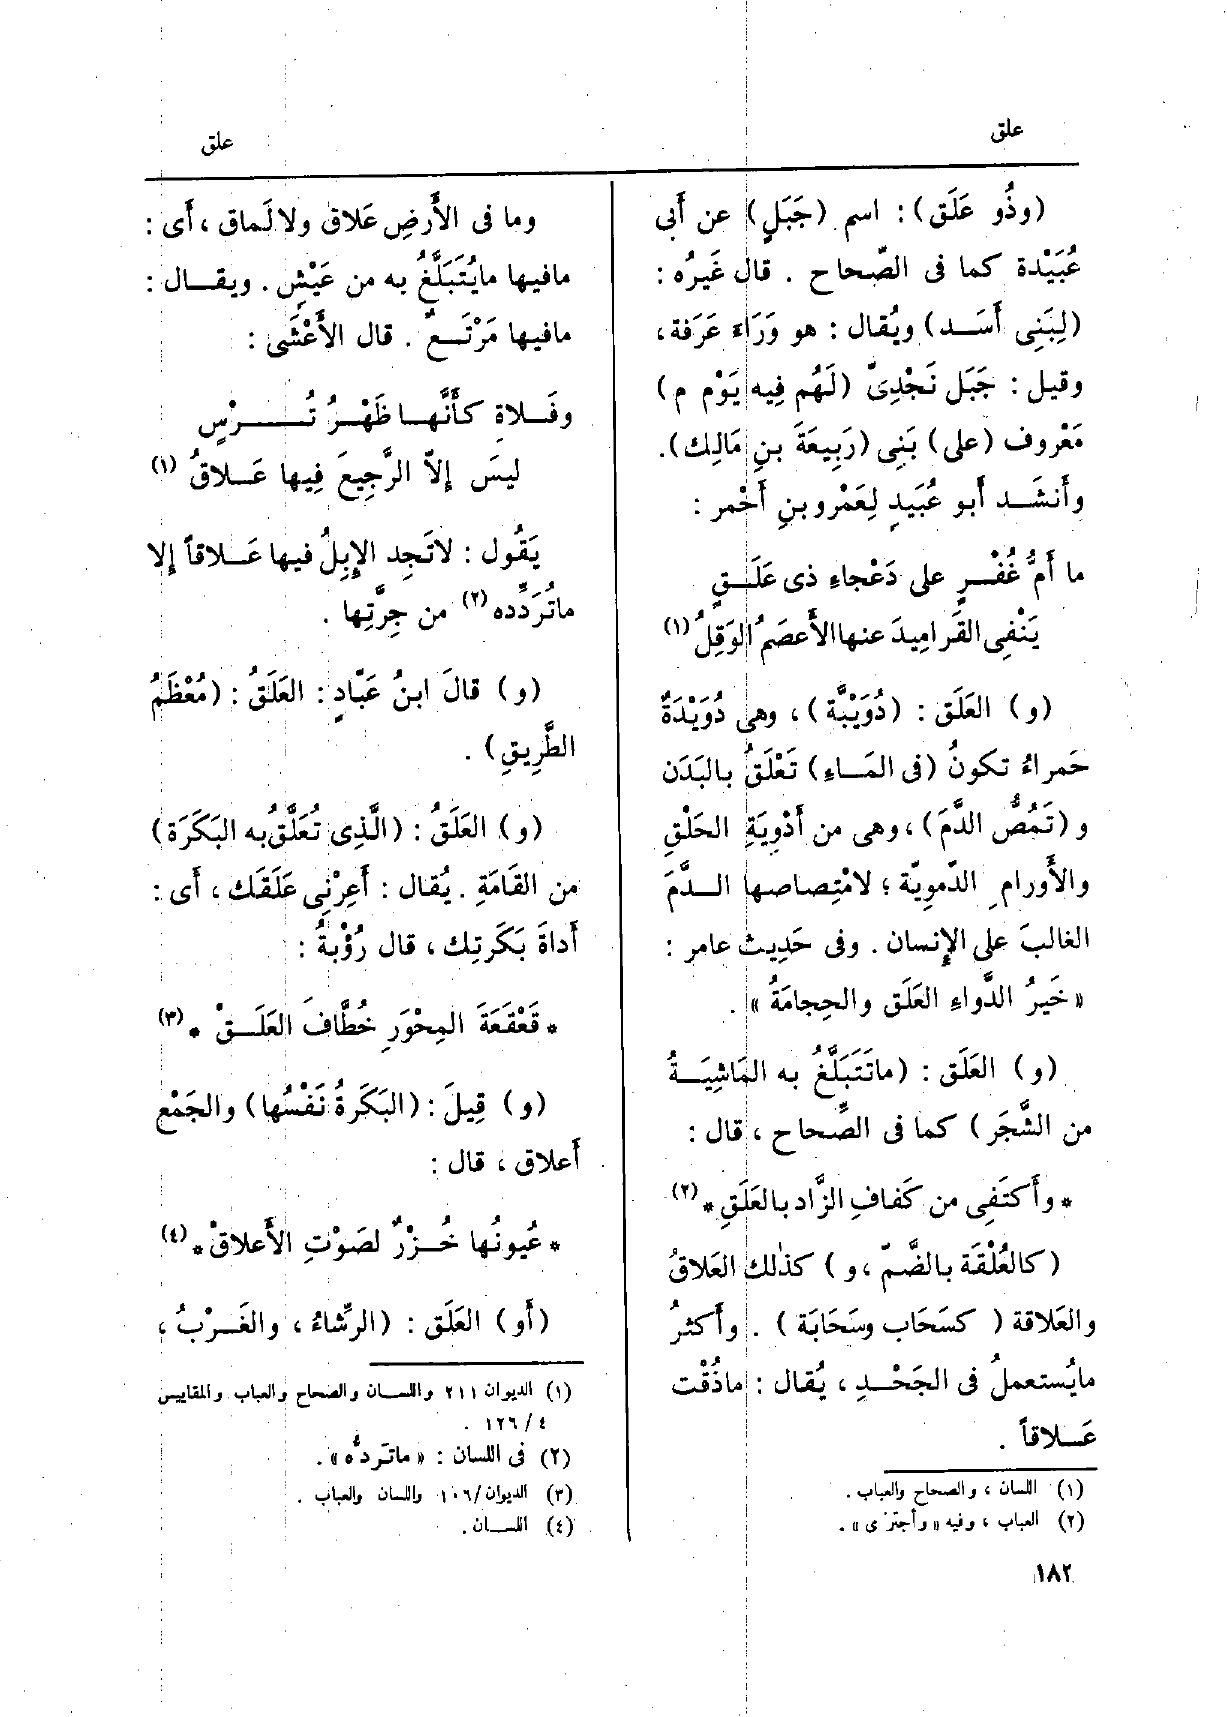 علق
علق
(وذُو عَلَق): اسم (جَبَلٍ) عن أَبى
عُبَيْدة كما فى الصّحاح . قال غَيرُه :
(لِبَنِى أَسَد) ويُقال : هو وَرَاءَ عَرَفة،
وقيل : جَبَل نَجْدِىّ (لَهُم فِيه يَوْم م)
مَعْروف (على) بَنِى (رَبِيعَةَ بنِ مَالِك).
وأَنشَد أَبو عُبَيدٍ لِعَمْرو بنِ أَحْمر :
ما أُمُّ غُفْرٍ على دَعْجاءِ ذى عَلَقٍ
يَنْفِى القَرامِيدَ عنها الأَعصَمُ الوَقِلُ (١)
(و) العَلَق : (دُوَيْبَّة) ، وهى دُوَيْدَةٌ
حَمراءُ تكونُ (فى المَاءِ) تَعْلَقُ بالبَدَن
و (تَمُصُّ الدَّمَ) ، وهى من أَدْوِيَةِ الحَلْقِ
والأَورامِ الدّمويّة ؛ لامْتِصاصها الدَّمَ
الغالبَ على الإِنسان . وفى حَدِيث عامر :
« خَيرُ الدَّواءِ العَلَق والحِجامَةُ » .
(و) العَلَق : (ماتَتَبَلَّغُ به المَاشِيَةُ
من الشَّجَر ) كما فى الصِّحاح ، قال :
* وأَكتَفِى من كَفافِ الزَّاد بالعَلَقِ * (٢)
(كالعُلْقَة بالضَّمّ ، و ) كذٰلك العَلاقُ
والعَلاقة ( كسَحَاب وسَحَابَة ) . وأَكثرُ
مايُستعملُ فى الجَحْدِ ، يُقال : ماذُقْت
عَلاقاً .
(١) اللسان ، والصحاح والعباب .
(٢) العباب ، وفيه « وأجتزى » .
١٨٢
وما فى الأَرضِ عَلاق ولا لَماق ، أَى :
مافيها مايُتَبَلَّغُ به من عَيْشٍ . ويقال :
مافيها مَرْتَعٌ . قال الأَعْشَى :
وفَلاةٍ كأَنَّها ظَهْرُ تُرْسٍ
ليسَ إلاّ الرَّجِيعَ فِيها عَلاقُ (١)
يَقُول : لاتَجِد الإِبِلُ فيها عَلاقاً إلا
ماتُرَدِّده (٢) من جِرَّتِها .
(و) قالَ ابنُ عَبّادٍ : العَلَقُ : (مُعْظَمُ
الطَّرِيقِ) .
(و) العَلَقُ : (الَّذِى تُعَلَّقُ به البَكَرَة)
من القَامَةِ . يُقال : أَعِرْنِى عَلَقَك ، أَى :
أَداةَ بَكَرتِك ، قال رُؤْبةُ :
* قَعْقَعَةَ المِحْوَرِ خُطَّافَ العَلَقْ * (٣)
(و) قِيلَ : (البَكَرَةُ نَفْسُها) والجَمْع
أَعلاق ، قال :
* عُيونُها خُزْرٌ لصَوْتِ الأَعلاقْ * (٤)
(أَو) العَلَق : (الرِّشاءُ ، والغَرْبُ ،
(١) الديوان ٢١١ واللسان والصحاح والعباب والمقاييس
٤ / ١٢٦ .
(٢) فى اللسان : « ماتَردُّه » .
(٣) الديوان/ ١٠٦ واللسان والعباب .
(٤) اللسان .